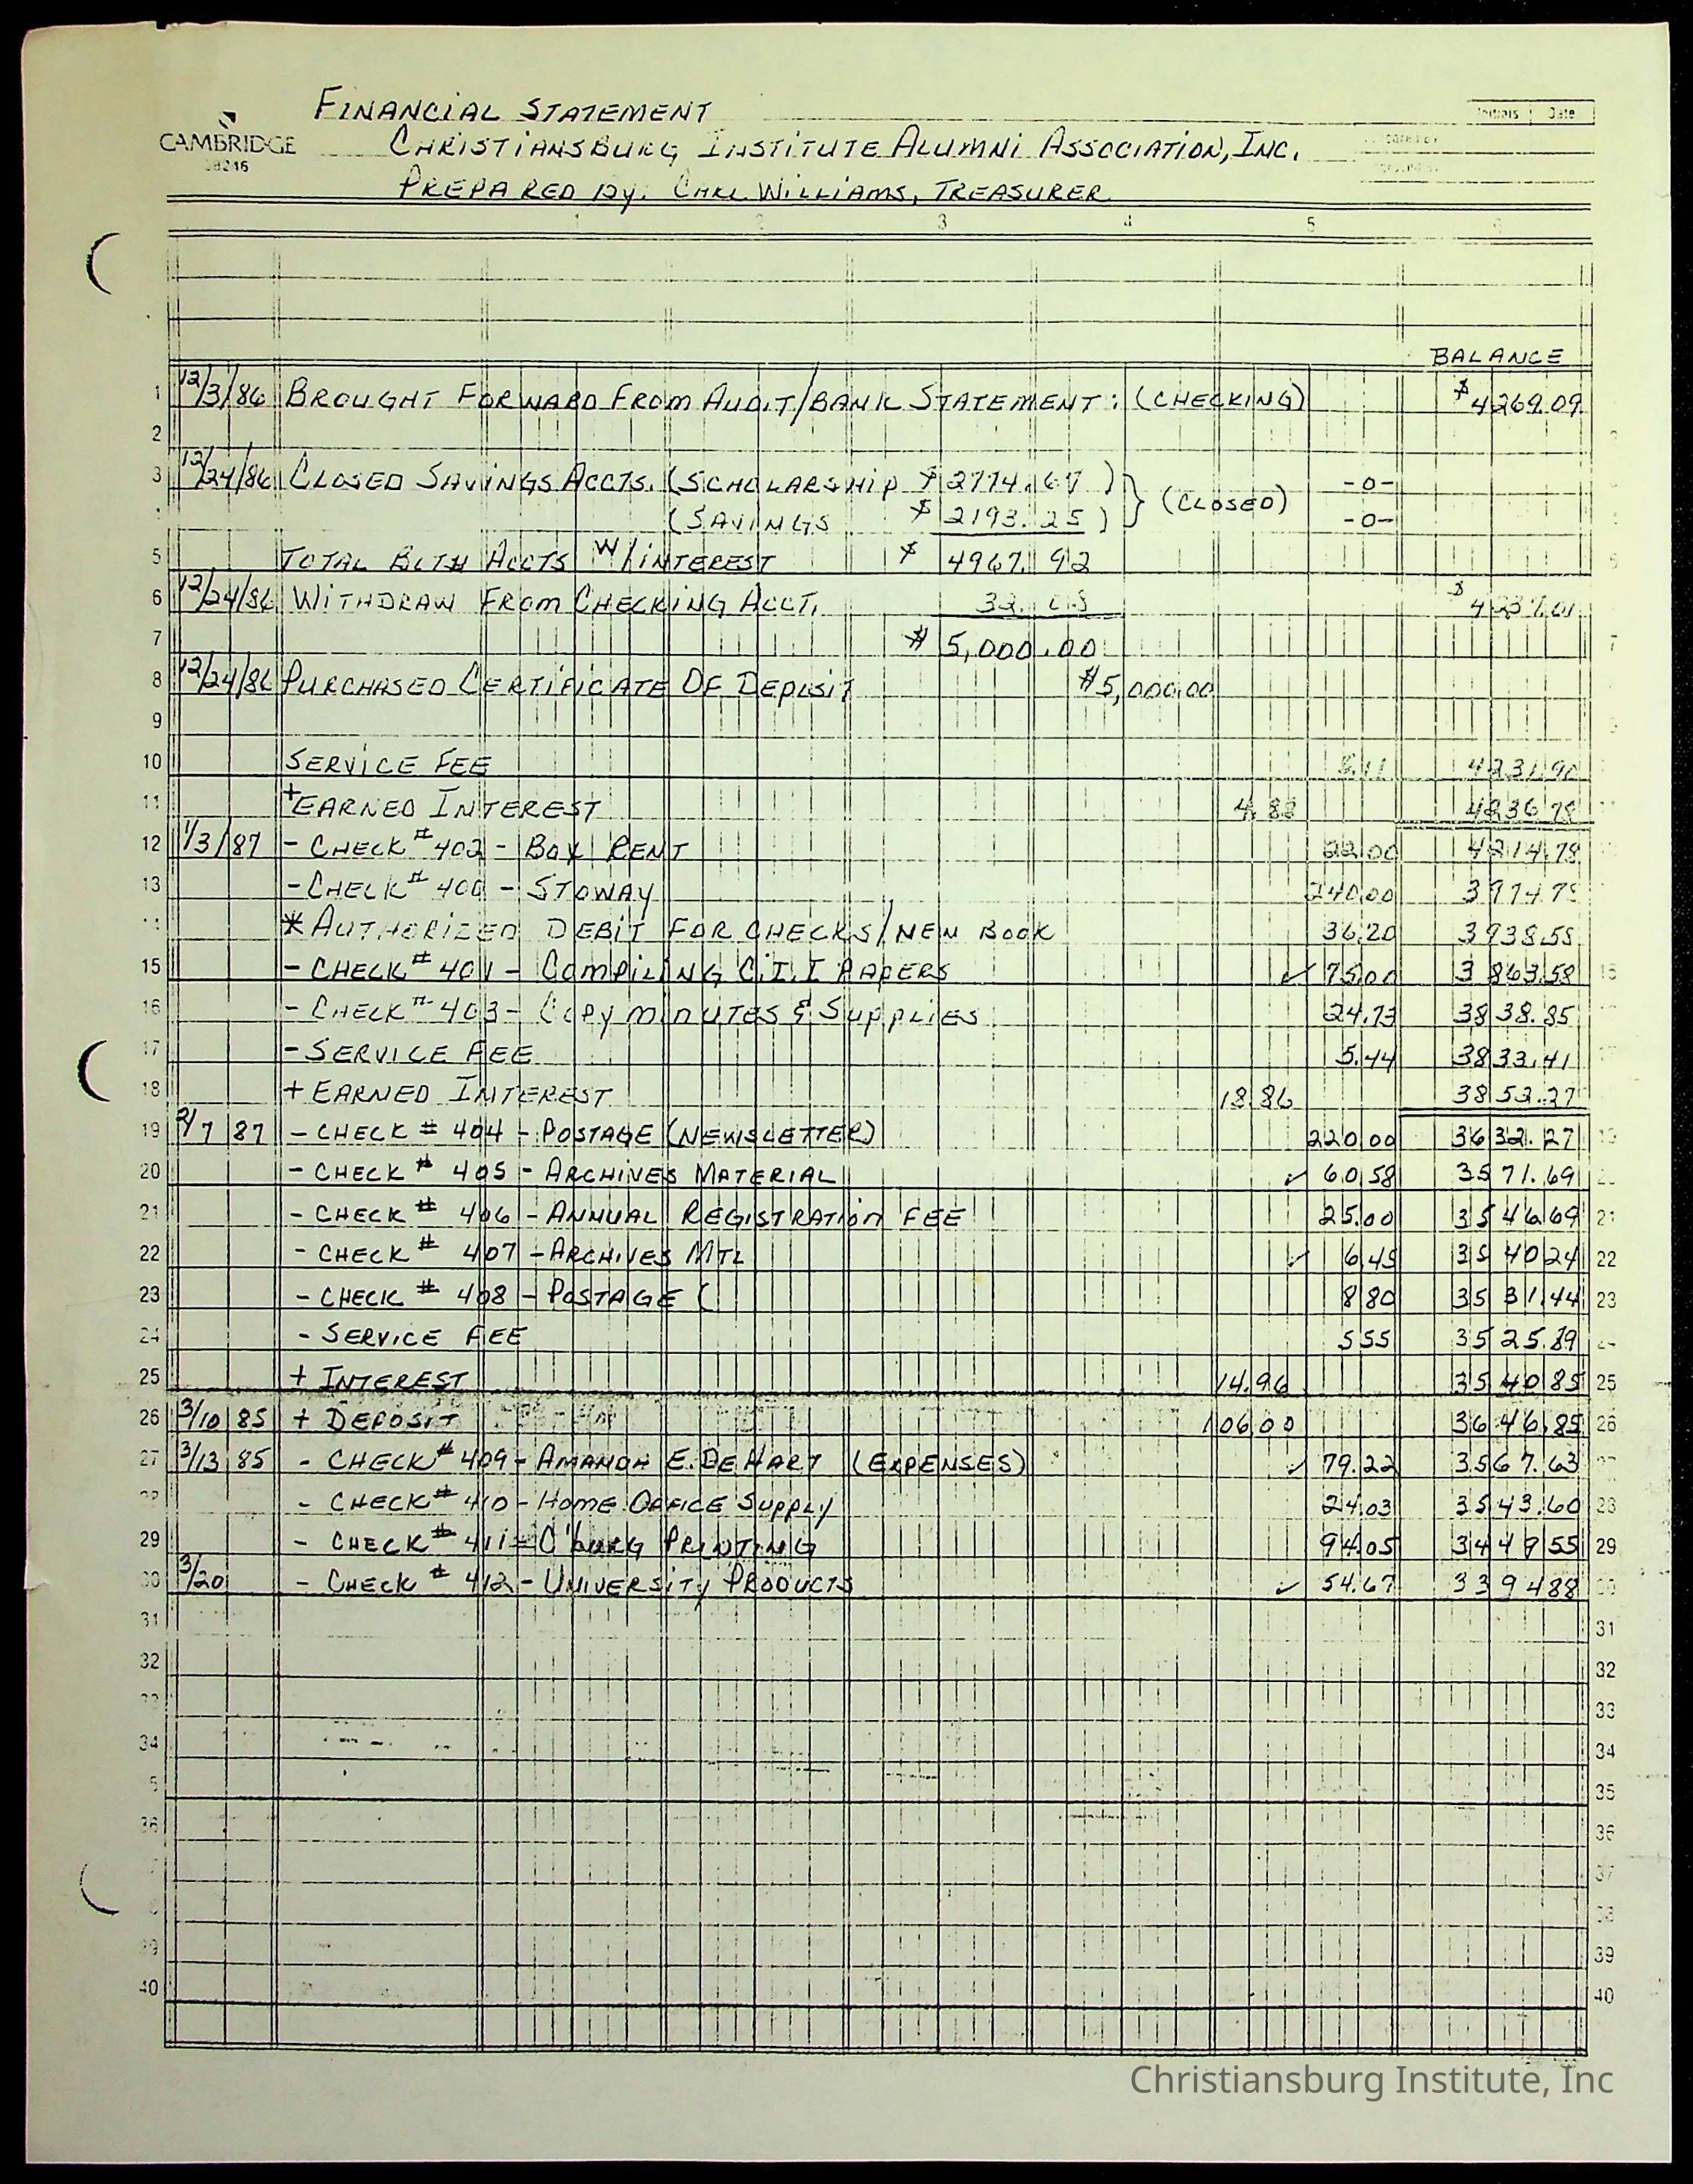 FINANCIAL STATEMENT
CAMBRIDGE
CHRISTIANSBURG INSTITUTE ALUMNI ASSOCIATION, INC.
PREPARED By. CARL WILLIAMS, TREASURER
Initials Date
1 2 3 4 5 6
BALANCE
1 12/3/86 BROUGHT FORWARD FROM AUDIT/BANK STATEMENT: (CHECKING) $4269.09
2
3 12/24/86 CLOSED SAVINGS ACCTS. (SCHOLARSHIP $2774.67 ) (CLOSED) -0-
(SAVINGS $2193.25 ) -0-
5 TOTAL BOTH ACCTS W/INTEREST $ 4967.92
6 12/24/86 WITHDRAW FROM CHECKING ACCT. 32.08 $4237.01
7 $5,000.00 7
8 12/24/86 PURCHASED CERTIFICATE OF DEPOSIT $5,000.00
9
10 SERVICE FEE 5.11 4231.90
11 +EARNED INTEREST 4.88 4236.78
12 1/3/87 - CHECK #402 - BOX RENT 22.00 4214.78
13 - CHECK # 400 - STOWAY 240.00 3974.78
* AUTHORIZED DEBIT FOR CHECKS/NEW BOOK 36.20 3938.58
15 - CHECK # 401 - COMPILING C.I.I PAPERS ✓ 75.00 3863.58 15
16 - CHECK # 403 - COPY MINUTES & SUPPLIES 24.73 3838.85
17 - SERVICE FEE 5.44 3833.41
18 + EARNED INTEREST 18.86 3852.27
19 2/7 87 - CHECK # 404 - POSTAGE (NEWSLETTER) 220.00 3632.27 19
20 - CHECK # 405 - ARCHIVES MATERIAL ✓ 60.58 3571.69
21 - CHECK # 406 - ANNUAL REGISTRATION FEE 25.00 3546.69 21
22 - CHECK # 407 - ARCHIVES MTL ✓ 6.45 3540.24 22
23 - CHECK # 408 - POSTAGE ( 8.80 3531.44 23
24 - SERVICE FEE 5.55 3525.89
25 + INTEREST 14.96 3540.85 25
26 3/10 85 + DEPOSIT 106.00 3646.85 26
27 3/13 85 - CHECK # 409 - AMANDA E. DEHART (EXPENSES) ✓ 79.22 3567.63
- CHECK # 410 - HOME OFFICE SUPPLY 24.03 3543.60 28
29 - CHECK # 411 - C'BURG PRINTING 94.05 3449.55 29
30 3/20 - CHECK # 412 - UNIVERSITY PRODUCTS ✓ 54.67 3394.88 30
31 31
32 32
33 33
34 34
35
36 36
39 39
40 40
Christiansburg Institute, Inc